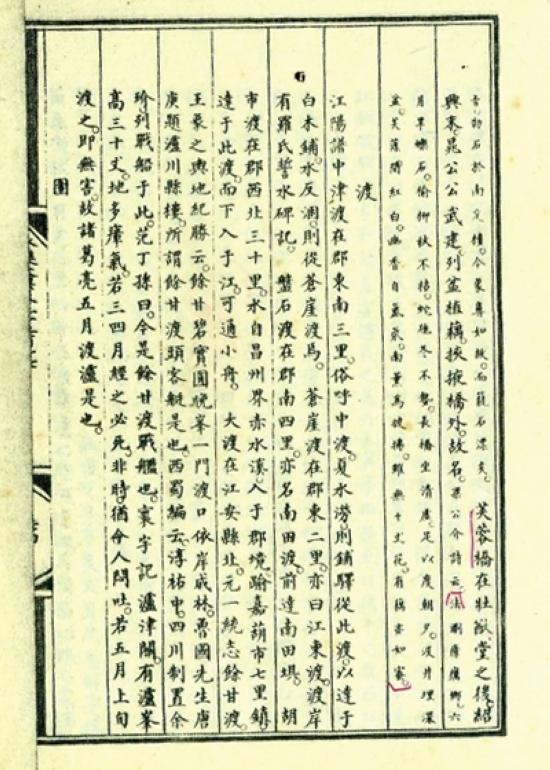 石於南定樓。今象鼻如故。而巔石深矣。 芙蓉橋在壯猷堂之後。紹
興辛晁公公武建。列盆植藕。挾掖橋外。故名。晁公介詩云。法
月旱嫩石。偷柳秋不枯。蛇冬不蟄。長橋坐清處。足以度朝夕。汲井埋深
盆。芙蓉間紅白。幽香自氤氳。南薰為披拂。雖無十丈花。有藕亦如蜜。
渡
江陽譜中津渡在郡東南三里。俗呼中渡。夏水澇則鋪驛從此渡。以達于
白木鋪。水反涸。則從蒼崖渡馬。 蒼崖渡在郡東二里。亦曰江東渡。渡岸
有羅氏誓水碑記。 盤石渡在郡南四里。亦名南田渡。前達南田壩。 胡
市渡在郡西北三十里。水自昌州界赤水溪。入于郡境。踰嘉葫市七里鎮。
達于此渡。而下入于江。可通小舟。 大渡在江安縣北。元一統志餘甘渡。
王象之輿地紀勝云。餘甘碧實圓脆。峯一門渡口。依岸成林。魯國先生唐
庚題瀘川縣樓。所謂餘甘渡頭客艇是也。西蜀編云。淳祐中四川制置余
玠列戰船于此。范丁孫曰。今是餘甘渡戰艦也。寰宇記 瀘津關。有瀘峯
高三十丈。地多瘴氣。若三四月經之必死。非時。猶令人悶吐。若五月上旬
渡之。即無害。故諸葛亮五月渡瀘是也。
圖